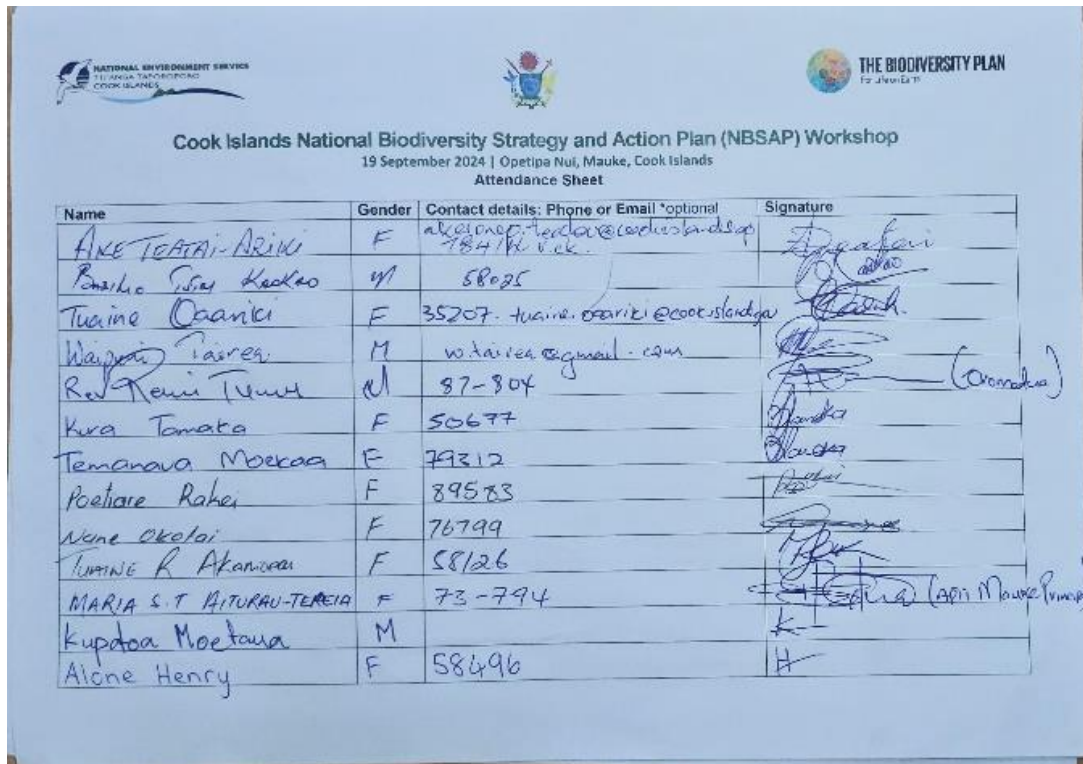 NATIONAL ENVIRONMENT SERVICE
COOK ISLANDS
THE BIODIVERSITY PLAN
For Life on Earth
Cook Islands National Biodiversity Strategy and Action Plan (NBSAP) Workshop
19 September 2024 | Opetipa Nui, Mauke, Cook Islands
Attendance Sheet
Name Gender Contact details: Phone or Email *optional Signature
AKE TEATAI-ARIKI F
M 58025
Tuaine Oaariki F 35207. tuaine.oaariki@cookislands
Tairea M w.tairea@gmail.com
Rev M 87-804
Kura Tamata F 50677
Temanava Moekaa F 79312
Poetiare Rahei F 89583
Nane Okotai F 76799
TUAINE R F 58126
MARIA S.T AITURAU-TEREIA F 73-794 (Apii Mauke
Kupatoa Moetaua M K
Alone Henry F 58496 H